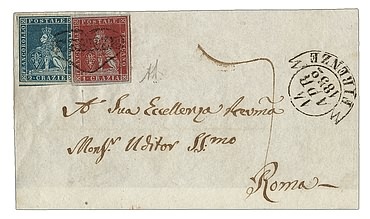 FRANCOBOLLO POSTALE TOSCANO
2 CRAZIE
FRANCOBOLLO POSTALE TOSCANO
1 CRAZIA
FIRENZE
APR
1856
A Sua Eccellenza
Monsr. Uditor SSmo
Roma